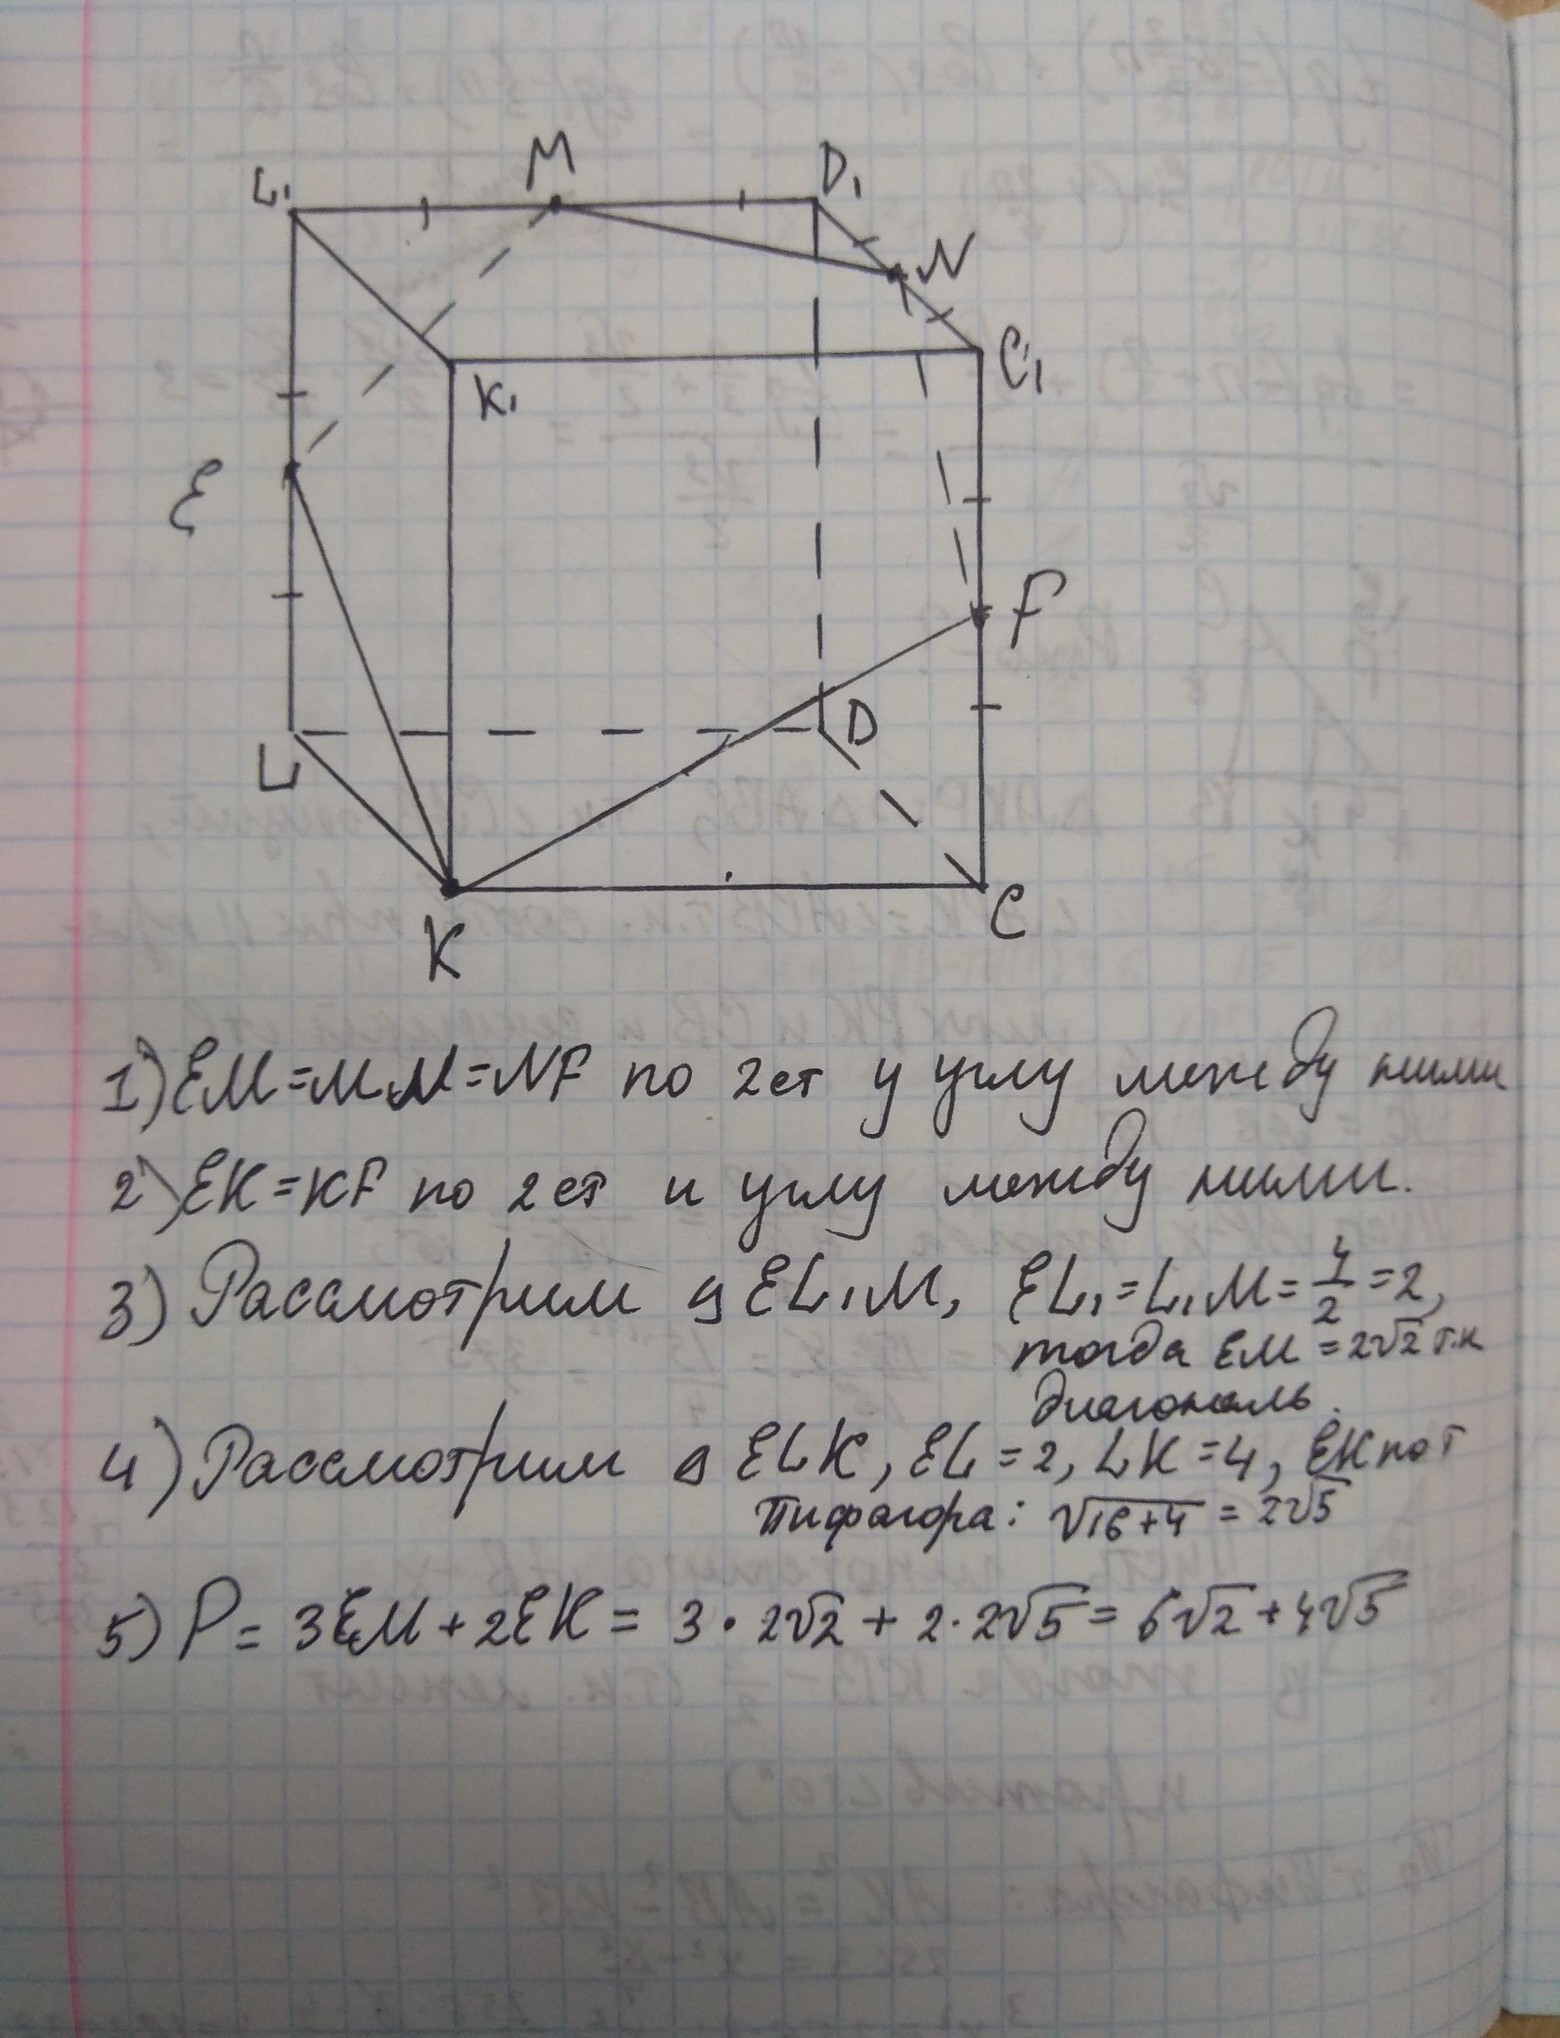 L₁ M D₁
N
K₁ C₁
E
F
L D
K C
1) EM=MN=NF по 2ст у углу между ними
2) EK=KF по 2 ст и углу между ними.
3) Рассмотрим △ EL₁M, EL₁=L₁M=4/2=2,
тогда EM=2√2 т.к
диагональ.
4) Рассмотрим △ ELK, EL=2, LK=4, EK по т
Пифагора: √16+4 = 2√5
5) P= 3EM+2EK= 3·2√2+2·2√5=6√2+4√5